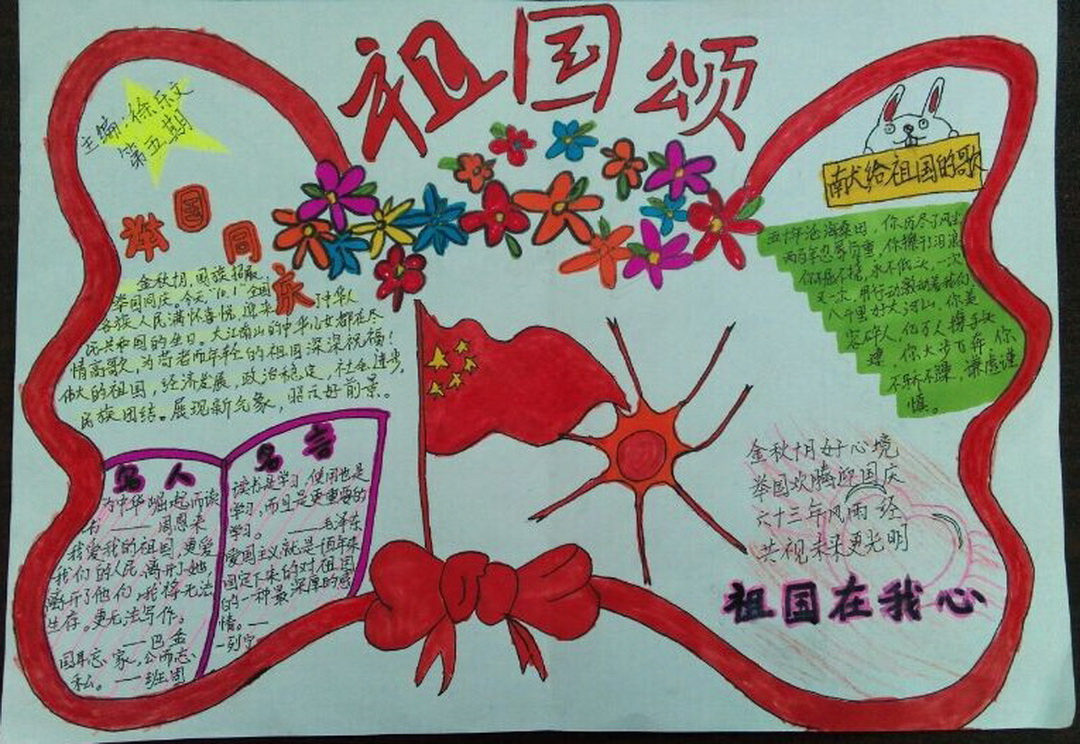 祖国颂
主编:徐乐文
第五期
举国同庆
金秋十月,国旗招展,
举国同庆。今天,"10.1"全国
各族人民满怀喜悦,迎来了中华人
民共和国的生日。大江南山的中华儿女都在尽
情高歌,为苍老而年轻的祖国深深祝福!
伟大的祖国,经济发展,政治稳定,社会进步,
民族团结。展现新气象,昭示好前景。
名人
为中华崛起而读
书——周恩来
我爱我的祖国,更爱
我们的人民,离开了她
离开了他们,我将无法
生存。更无法写作。
——巴金
国耳忘家,公而忘
私。——班固
名言
读书是学习,使用也是
学习,而且是更重要的
学习。
——毛泽东
爱国主义就是千百年来
固定下来的对祖国
的一种最深厚的感
情。——
—列宁
献给祖国的歌
五十年沧海桑田,你历尽了风尘
两百年忍辱负重,你擦干泪滴
你不屈不挠,永不低头,一次
又一次,用行动
八千里好大河山,你美
容碎人,亿万人携手共
建,你大步飞奔,你
不骄不躁,谦虚谨
慎。
金秋十月好心境
举国欢腾迎国庆
六十三年风雨经
共视未来更光明
祖国在我心